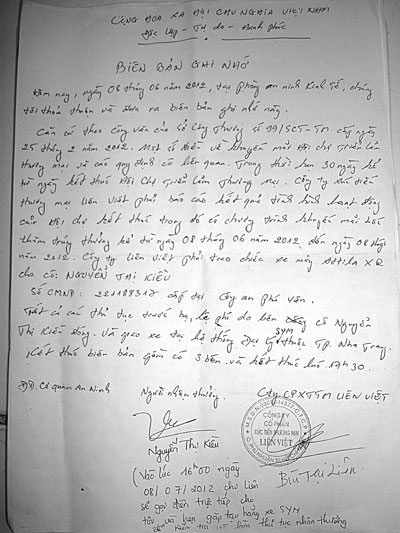 CỘNG HOA XA HỘI CHU NGHIA VIỆT NAM
Độc lập - Tự do - Hạnh phúc
BIÊN BẢN GHI NHỚ
Hôm nay, ngày 08 tháng 06 năm 2012, tại phòng an ninh Kinh tế, chúng
tôi thoả thuận và đưa ra biên bản ghi nhớ này.
Căn cứ theo công văn của sở Công Thương số 99/SCT-TM cấp ngày
25 tháng 2 năm 2012. Một số điều về khuyến mãi Hội chợ Triển lãm
thương mại và các quy định có liên quan. Trong thời hạn 30 ngày kể
từ ngày kết thúc Hội Chợ Triển Lãm Thương Mại. Công ty xúc tiến
thương mại Liên Việt phải báo cáo kết quả tình hình hoạt động
của Hội chợ kết thúc trong đó có chương trình khuyến mãi bốc
thăm trúng thưởng kể từ ngày 08 tháng 06 năm 2012 đến ngày 08
năm 2012. Công ty Liên Việt phải trao chiếc xe máy Attila XQ
cho cô: NGUYỄN THỊ KIỀU
Số CMND: 221188317 cấp tại Công an Phú Yên.
Tất cả các thủ tục trước bạ, lệ phí do bên cô Nguyễn
Thị Kiều đóng. Và giao xe tại hệ thống Đại lý SYM thuộc TP. Nha Trang.
Kết thúc biên bản gồm có 3 bản. và kết thúc lúc 17h30.
Đ.D. Cơ quan An Ninh
Người nhận thưởng.
CTy CPXTTM LIÊN VIỆT
CÔNG TY
CỔ PHẦN
XÚC TIẾN THƯƠNG MẠI
LIÊN VIỆT
Nguyễn Thị Kiều
Bùi Thị Liên
(Vào lúc 16h00 ngày
08/07/2012 chị Liên
sẽ gọi điện trực tiếp cho
tôi và hẹn gặp tại hãng xe SYM
thủ tục nhận thưởng